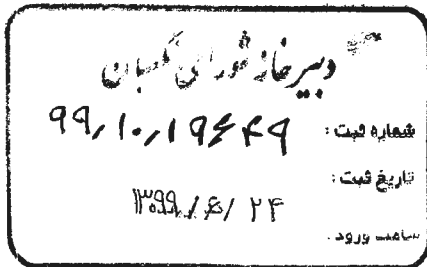 دبیرخانه شورای نگهبان
شماره ثبت : ۹۹/۱۰/۱۹۶۴۹
تاریخ ثبت :
۱۳۹۹/۶/۲۴
ساعت ورود :